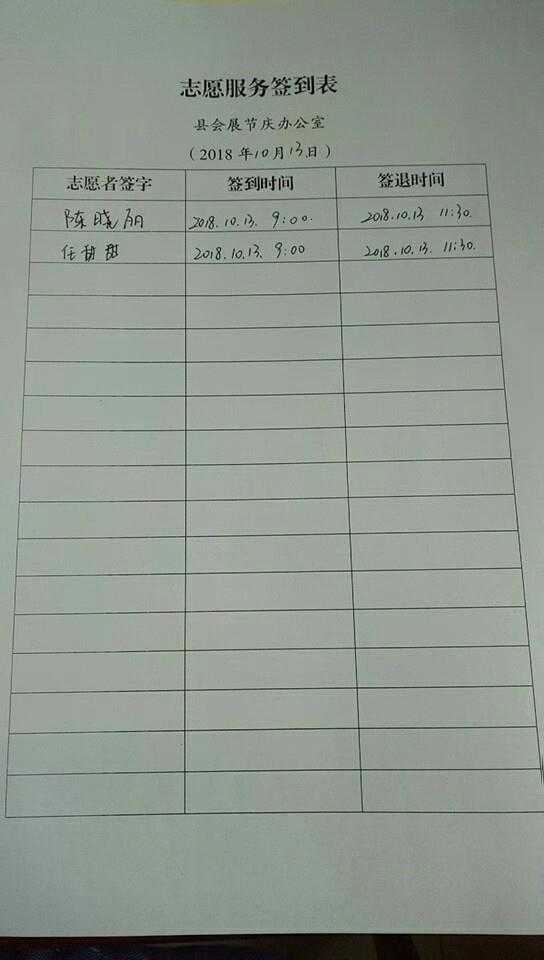 志愿服务签到表
县会展节庆办公室
（2018年10月13日）
志愿者签字 签到时间 签退时间
陈晓丽 2018.10.13. 9:00. 2018.10.13 11:30.
任 甜 2018.10.13. 9:00 2018.10.13. 11:30.